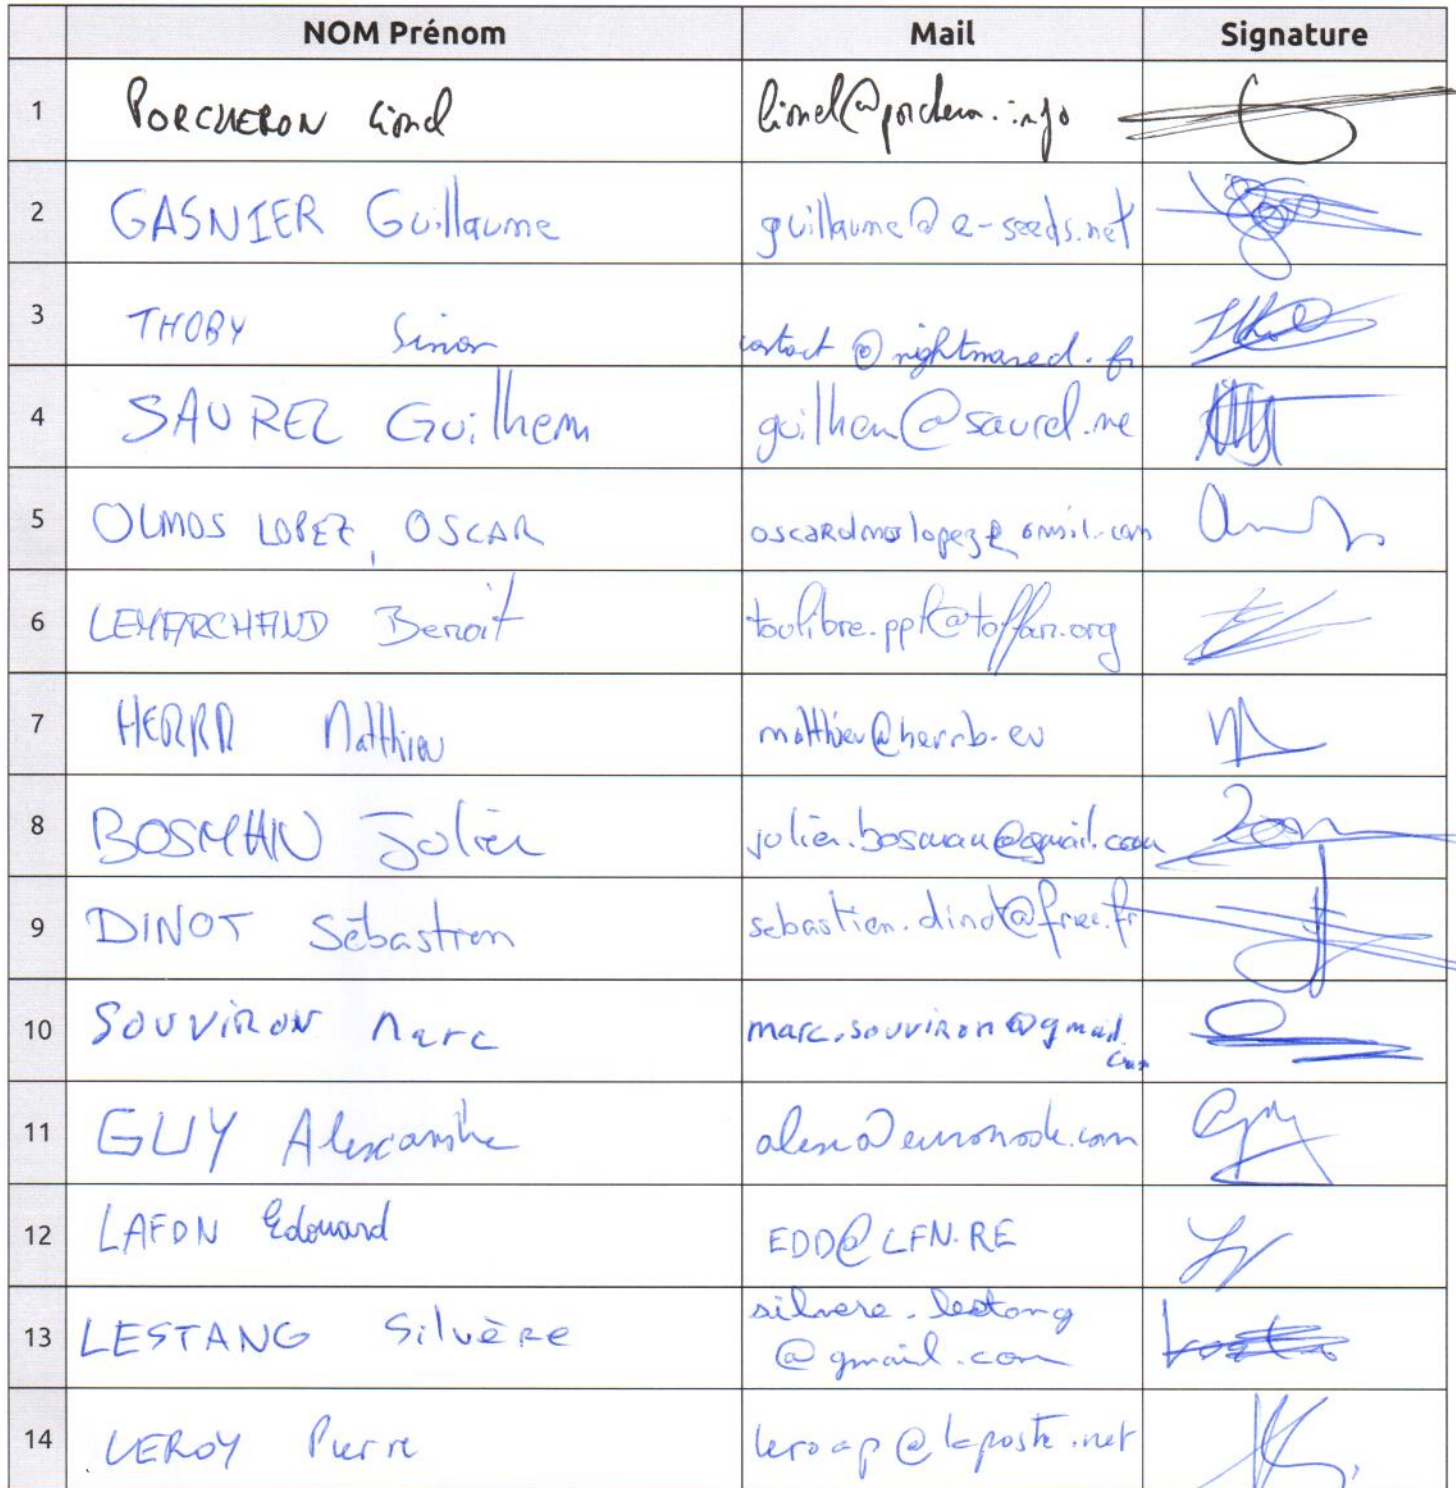 NOM Prénom Mail Signature
1 PORCHERON Lionel lionel@porcheron.info
2 GASNIER Guillaume guillaume@e-seeds.net
3 THOBY Simon contact@nightmared.fr
4 SAUREL Guilhem guilhem@saurel.me
5 OLMOS LOPEZ, OSCAR oscarolmoslopez@gmail.com
6 LEMARCHAND Benoit toulibre.ppk@toffan.org
7 HERRB Matthieu matthieu@herrb.eu
8 BOSMAN Julien julien.bosman@gmail.com
9 DINOT Sébastien sebastien.dinot@free.fr
10 SOUVIRON Marc marc.souviron@gmail.
com
11 GUY Alexandre alex@euronode.com
12 LAFON Edouard EDD@LFN.RE
13 LESTANG Silvère silvere.lestang
@gmail.com
14 LEROY Pierre @laposte.net